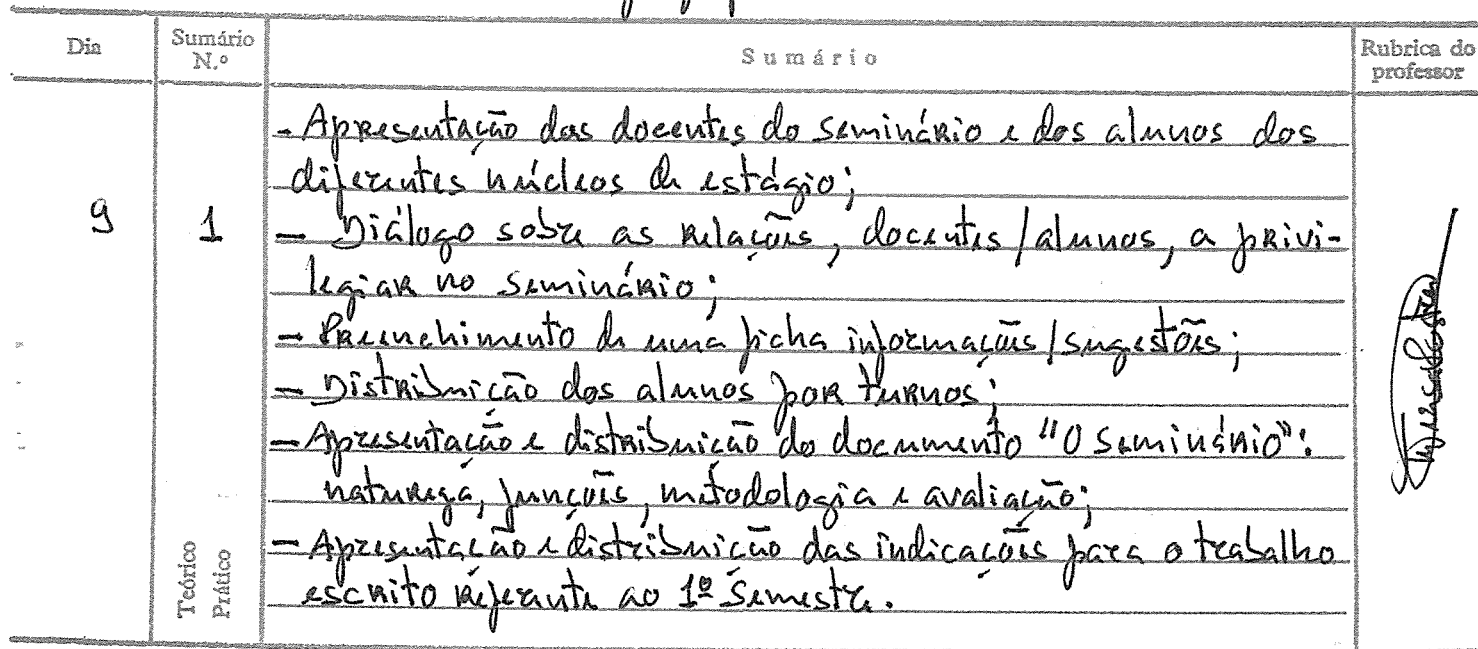 Dia
Sumário N.º
Sumário
Rubrica do professor
9
1
Teórico
Prático
- Apresentação dos docentes do seminário e dos alunos dos
diferentes núcleos de estágio;
- Diálogo sobre as relações, docentes/alunos, a privi-
legiar no seminário;
- Preenchimento de uma ficha informações/sugestões;
- Distribuição dos alunos por turnos;
- Apresentação e distribuição do documento "O seminário":
natureza, funções, metodologia e avaliação;
- Apresentação e distribuição das indicações para o trabalho
escrito referente ao 1º Semestre.